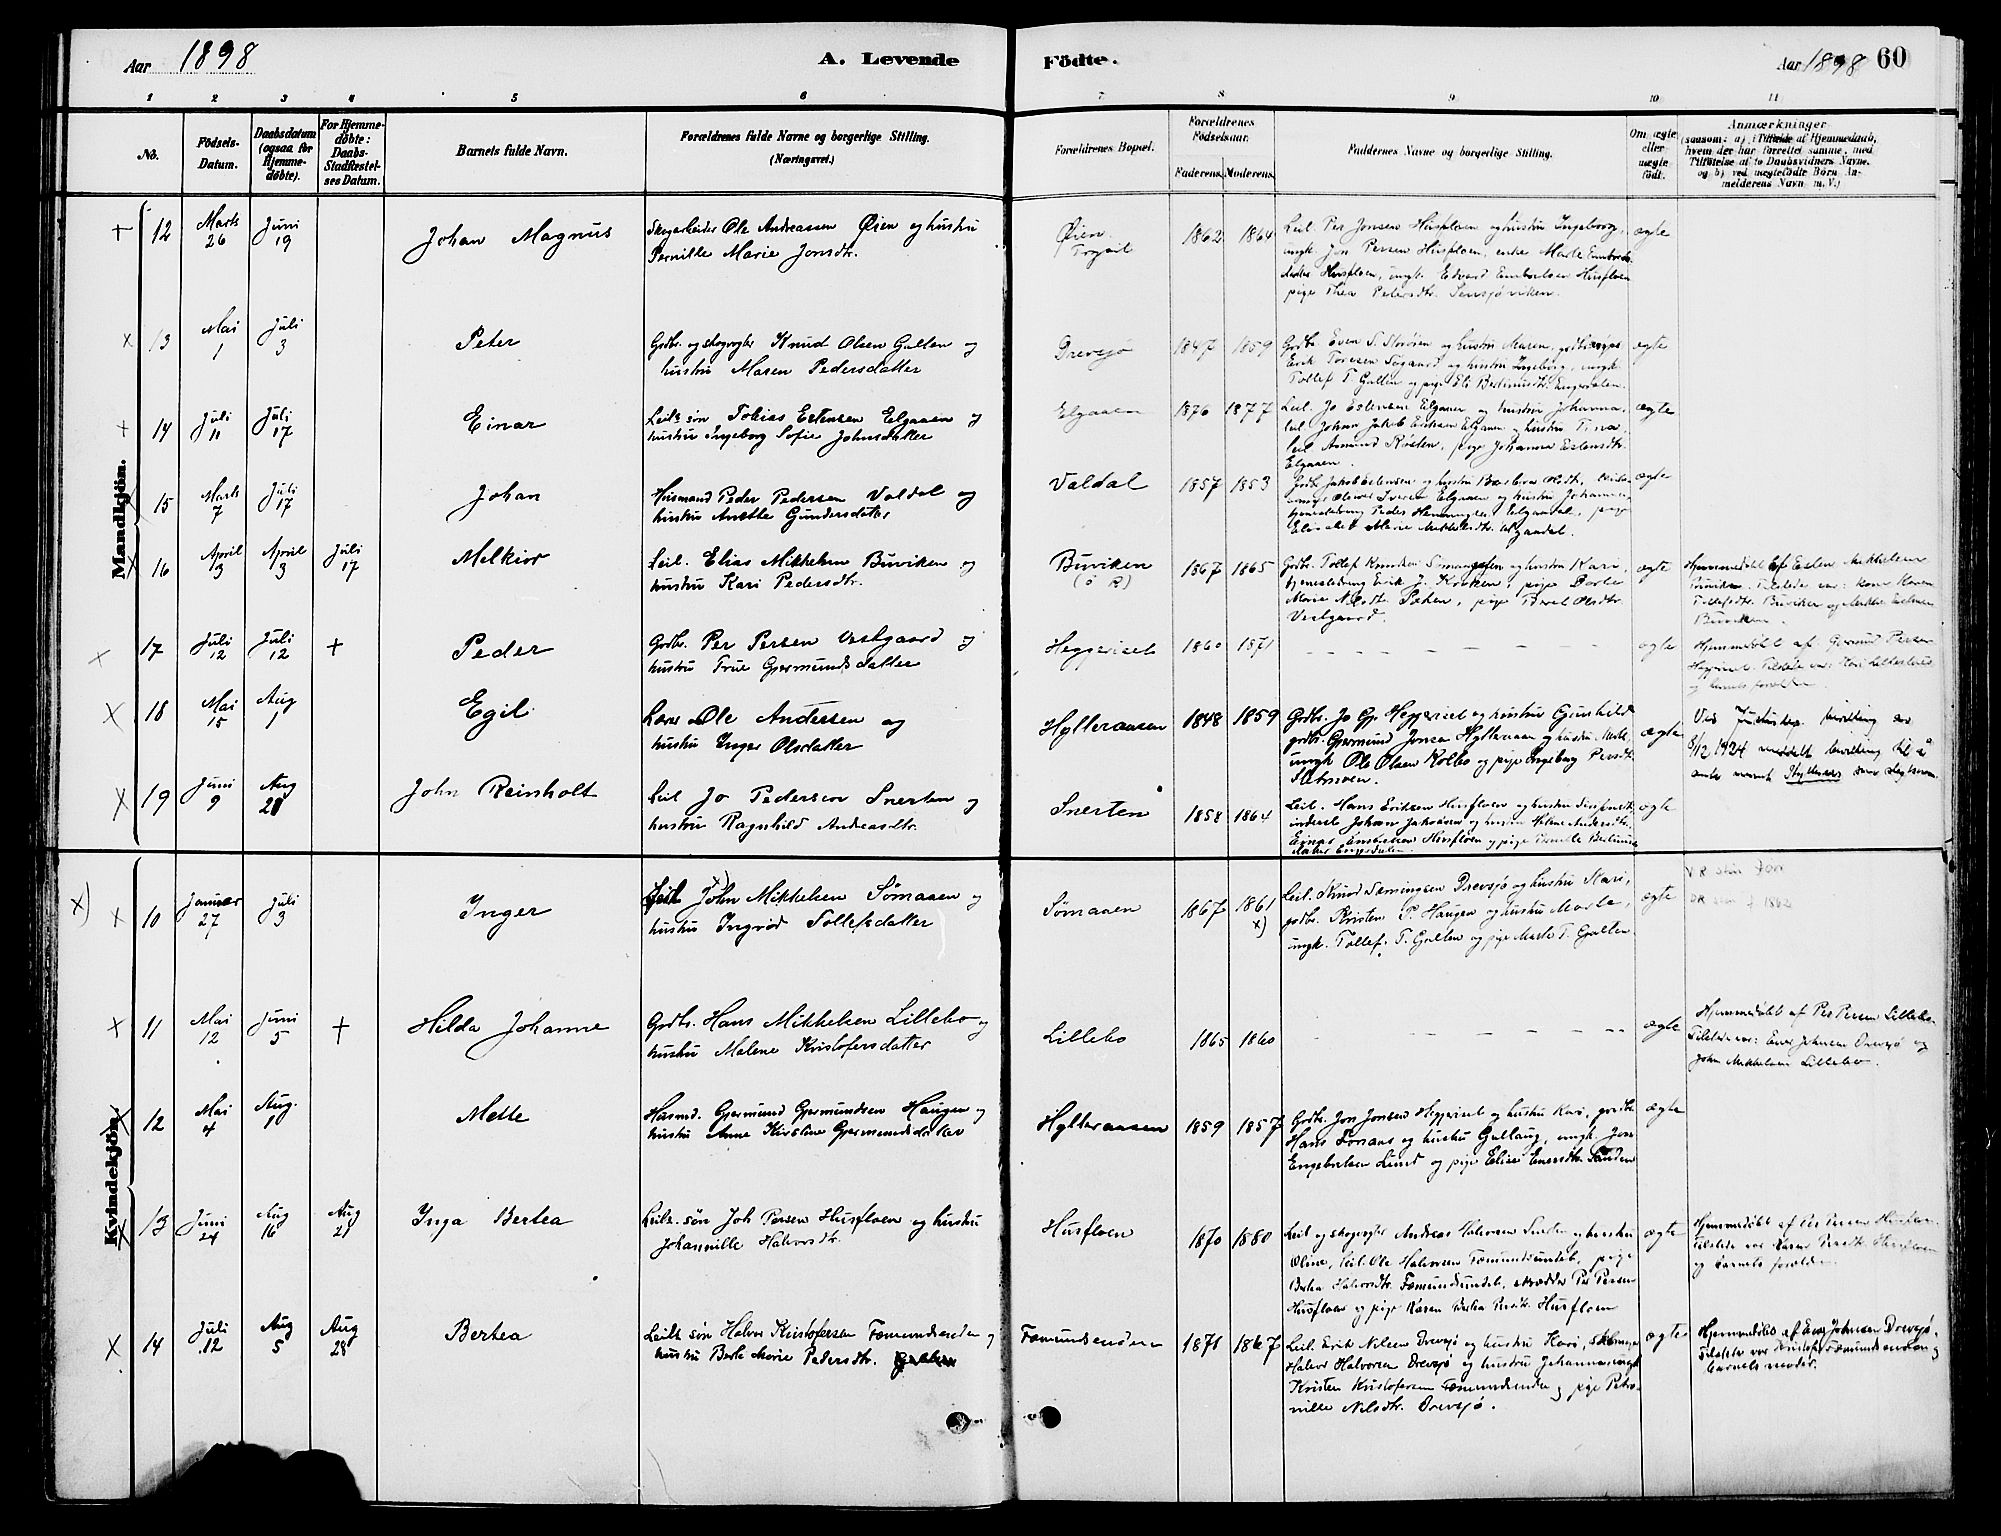 Aar 1898
A. Levende
Födte.
Aar 1898 60
1 2 3 4 5 6 7 8 9 10 11
No.
Födsels-
Datum.
Daabsdatum
(ogsaa for
Hjemme-
döbte).
For Hjemme-
döbte:
Daabs-
Stadfæstel-
ses Datum.
Barnets fulde Navn.
Forældrenes fulde Navne og borgerlige Stilling.
(Næringsvei.)
Forældrenes Bopæl.
Forældrenes
Födselsaar.
Faderens. Moderens.
Faddernes Navne og borgerlige Stilling.
Om ægte
eller
uægte
födt.
Anmærkninger
(saasom: a) i Tilfælde af Hjemmedaab,
hvem der har forrettet samme, med
Tilföielse af to Daabsvidners Navne,
og b) ved uægtefödte Börn An-
melderens Navn m. V.)
Mandkjön.
12 Marts 26 Juni 19
Johan Magnus
Skogarbeider Ole Andreassen Øien og hustru
Pernille Marie Jonsdtr.
Øien
Trysil
1862 1864
Leil. Per Jonsen Husfloen og hustru Ingeborg,
ungk. Jon Persen Husfloen, enke Marte Embrets-
datter Husfloen, ungk. Edvard Embretsen Husfloen
pige Thea Petersdtr. Sensjøviken.
ægte
13 Mai 1 Juli 3
Peter
Grdbr. og skogvogter Knud Olsen Galten og
hustru Maren Pedersdatter
Drevsjø
1847 1859
Grdbr. Even S. Storøsen og hustru Maren,
Erik Toresen Søgaard og hustru Ingeborg, ungk.
Tollef T. Galten og pige Eli Bertinusdtr. Engerdalen.
ægte
14 Juli 11 Juli 17
Einar
Leil.s søn Tobias Estensen Elgaaen og
hustru Ingeborg Sofie Johnsdatter
Elgaaen
1876 1877
Leil. Jo Estensen Elgaaen og hustru Johanna,
leil. Johan Jakob Eriksen Elgaaen og hustru Tina,
leil. Amund Røsten, pige Johanna Estensdtr.
Elgaaen.
ægte
15 Marts 7 Juli 17
Johan
Husmand Peder Pedersen Valdal og
hustru Anette Gundersdatter
Valdal
1857 1853
ægte
16 April 3 April 3 Juli 17
Melkior
Leil. Elias Mikkelsen Buviken og
hustru Kari Pedersdtr.
Buviken
1867 1865
Grdbr. Tollef Knudsen Sømaaen og hustru Kari,
Vestgaard.
ægte
Hjemmedøbt af Esten Mikkelsen
Buviken. Tilstede var: kone Karen
Tollefsdtr. Buviken og Mikkel Estensen
Buviken.
17 Juli 12 Juli 12 +
Peder
Grdbr. Per Persen Vestgaard og
hustru True Gjermundsdatter
Heggeriset
1860 1871
ægte
Hjemmedøbt af Gjermund Persen
Heggeriset. Tilstede var: Kari
og barnets forældre.
18 Mai 15 Aug 1
Egil
Lærer Ole Andersen og
hustru Inger Olsdatter
Hylleraasen
1848 1859
Grdbr. Jo Gp. Heggeriset og hustru Gunhild
grdbr. Gjermund Jonsen Hylleraasen og hustru Mette,
ungk. Ole Olsen Kolbo og pige Ingeborg Persdtr.
ægte
Ved Justisdep. bevilling av
8/12 1924 meddelt bevilling til å
anta navnet Hylleraas som slegtsnavn.
19 Juni 9 Aug 28
John Reinholt
Leil Jo Pedersen Snerten og
hustru Ragnhild Andreasdtr.
Snerten
1858 1864
Leil. Hans Eriksen Husfloen og hustru
inderst Johan Jakobsen og hustru Helene Andersdtr.
Einar Embretsen Husfloen og pige Pernille Bertinus-
datter Engerdalen.
ægte
Kvindekjön.
x) 10 Januar 27 Juli 3
Inger
Leil John x) Mikkelsen Sømaaen og
hustru Ingrid Tollefsdatter
Sømaaen
1867 1861 x)
Leil. Knud Sæmingsen Drevsjø og hustru Kari,
grdbr. Kristen P. Haugen og hustru Marte,
ungk. Tollef T. Galten og pige Marte T. Galten
ægte
11 Mai 12 Juni 5 +
Hilda Johanne
Grdbr. Hans Mikkelsen Lillebo og
hustru Malene Kristofersdatter
Lillebo
1865 1860
ægte
Hjemmedøbt af Per Persen Lillebo.
Tilstede var: Einer Johnsen Drevsjø og
John Mikkelsen Lillebo.
12 Mai 4 Aug. 10
Mette
Husmd. Gjermund Gjermundsen Haugen og
hustru Anne Kirstine Gjermundsdatter
Hylleraasen
1859 1857
Grdbr. Jon Jonsen Heggeriset og hustru Kari, grdbr.
Hans Fonaas og hustru Gullaug, ungk. Jon
Engebretsen Lund og pige Elise Enersdtr. Sanden
ægte
13 Juni 24 Aug 16 Aug 21
Inga Bertea
Leil.s søn Joh Persen Husfloen og hustru
Johannille Halvorsdtr.
Husfloen
1870 1880
Leil og skogvogter Andreas Halvorsen Snerten og hustru
Oline, leil. Ole Halvorsen Fæmundsundet, pige
Bertea Halvorsdtr. Fæmundsundet, skrædder Per Persen
Husfloen og pige Karen Bertea Persdtr. Husfloen
ægte
Hjemmedøbt af Per Persen Husfloen.
Tilstede var Karen Persdtr. Husfloen
og barnets forældre.
14 Juli 12 Aug 5 Aug 28
Bertea
Leil.s søn Halvor Kristofersen Fæmundsenden og
hustru Berte Marie Pedersdtr.
Fæmundsenden
1871 1867
Leil. Erik Nilsen Drevsjø og hustru Kari,
Halvor Halvorsen Drevsjø og hustru Johanna, ungk.
Kristen Kristofersen Fæmundsenden og pige Petro-
nille Nilsdtr. Drevsjø.
ægte
Hjemmedøbt af Einer Johnsen Drevsjø.
Tilstede var Kristofer Fæmundsenden og
barnets moder.